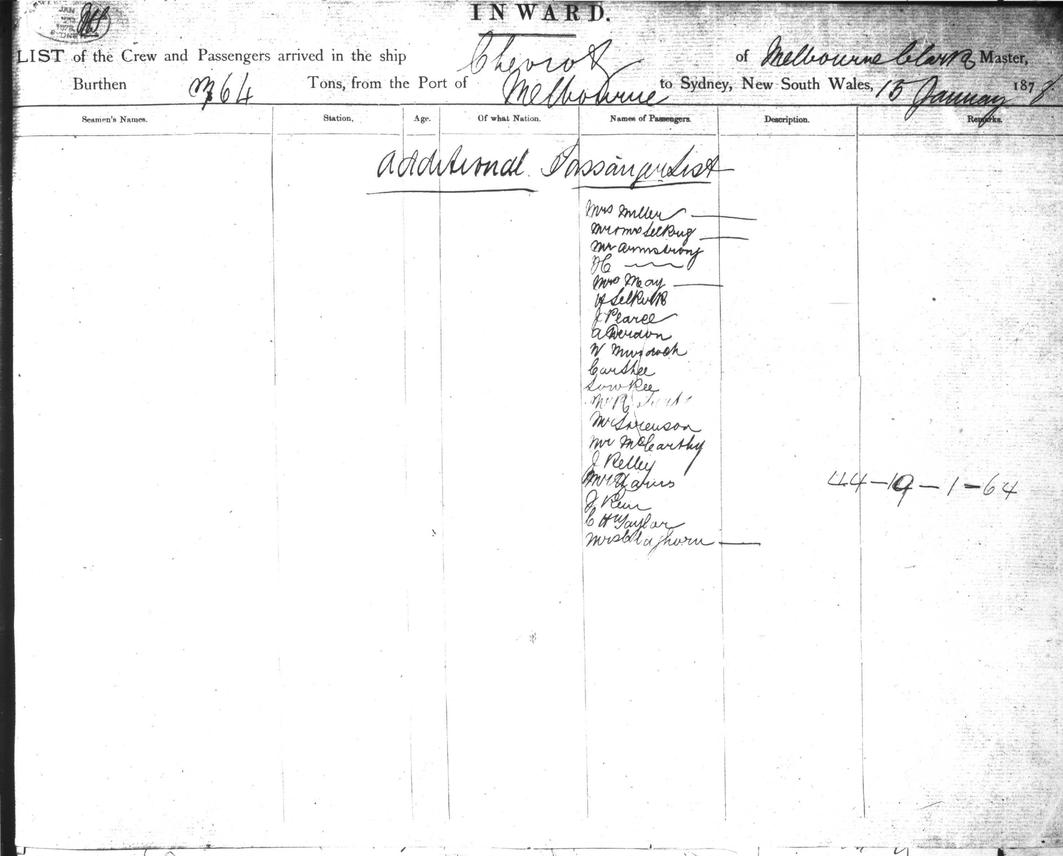 INWARD.
LIST of the Crew and Passengers arrived in the ship Cheviot of Melbourne Clark Master,
Burthen 764 Tons, from the Port of Melbourne to Sydney, New South Wales, 15 January 1878
Seamen's Names. Station. Age. Of what Nation. Names of Passengers. Description. Remarks.
Additional Passenger List
Mrs Miller
Mr & Mrs
Mr Armstrong
Mrs May
J Pearce
A Derdon
W Murdoch
Sow Kee
Mr Sorenson
Mr McCarthy
J Kelley
44-19-1-64
C H Taylor
Mrs Claghorn